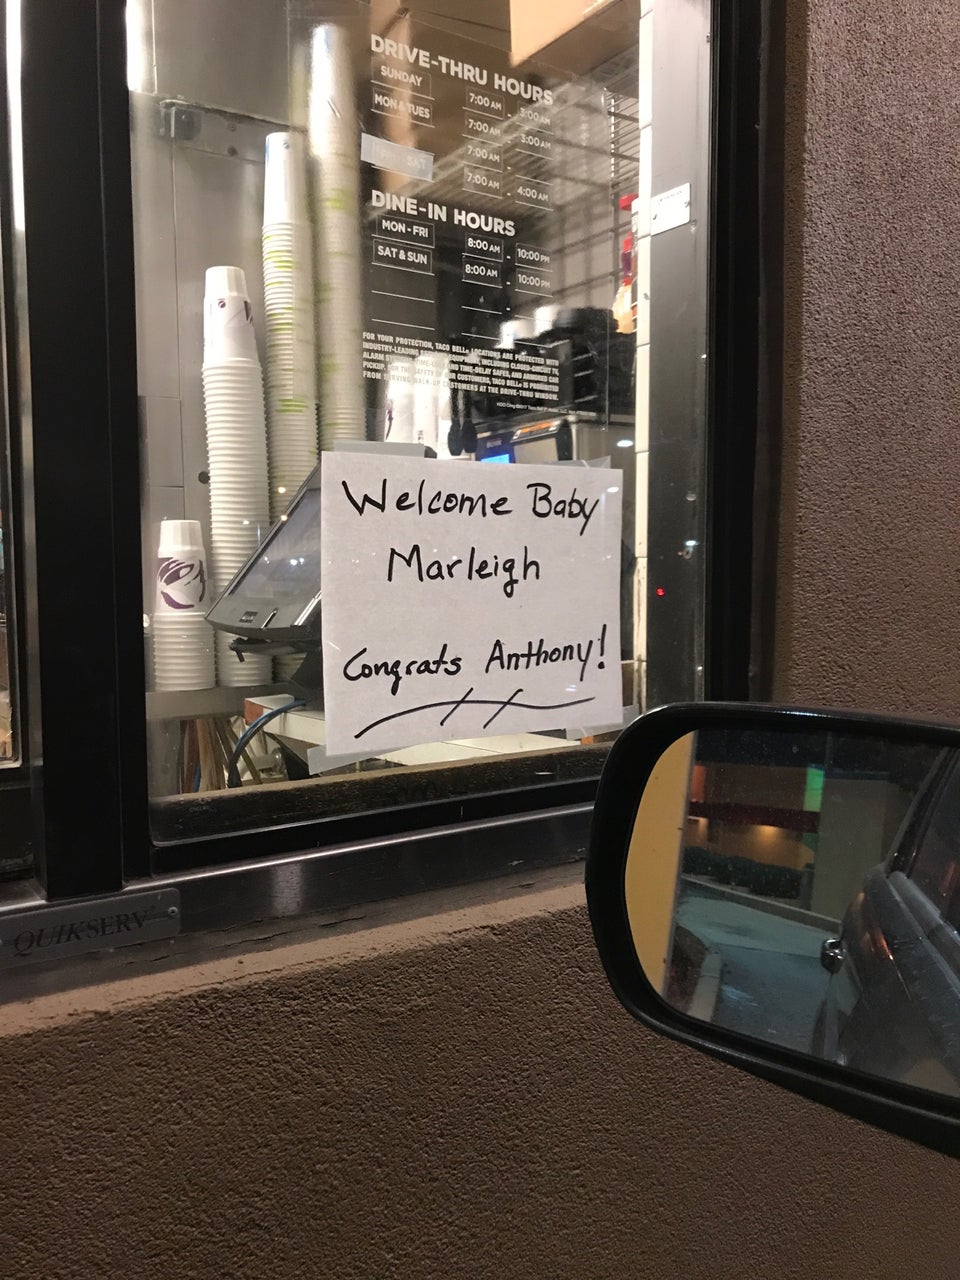 DRIVE-THRU HOURS
SUNDAY 7:00 AM - 3:00 AM
MON & TUES 7:00 AM - 3:00 AM
SAT 7:00 AM
7:00 AM - 4:00 AM
DINE-IN HOURS
MON - FRI 8:00 AM - 10:00 PM
SAT & SUN 8:00 AM - 10:00 PM
FOR YOUR PROTECTION, TACO BELL® LOCATIONS ARE PROTECTED WITH
INDUSTRY-LEADING EQUIPMENT, INCLUDING CLOSED-CIRCUIT TV,
ALARM AND TIME-DELAY SAFES, AND ARMORED CAR
PICKUP. FOR THE SAFETY OF OUR CUSTOMERS, TACO BELL® IS PROHIBITED
FROM SERVING WALK-UP CUSTOMERS AT THE DRIVE-THRU WINDOW.
Welcome Baby
Marleigh
Congrats Anthony!
QUIKSERV